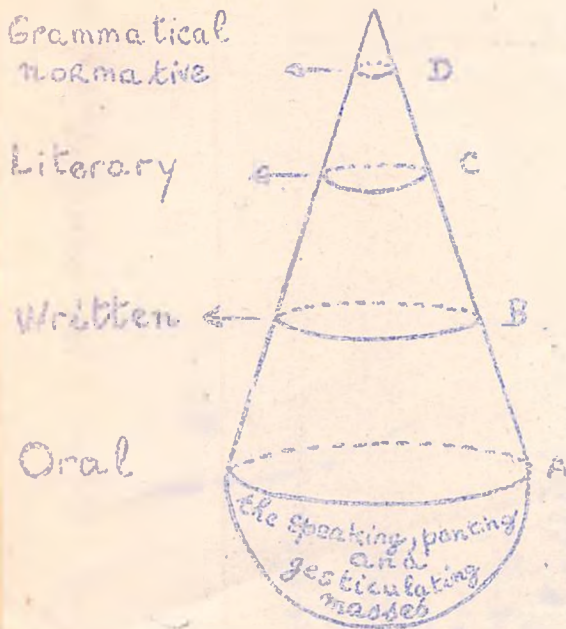 Grammatical
normative
D
Literary
C
Written
B
Oral
A
the speaking, panting
and
gesticulating
masses